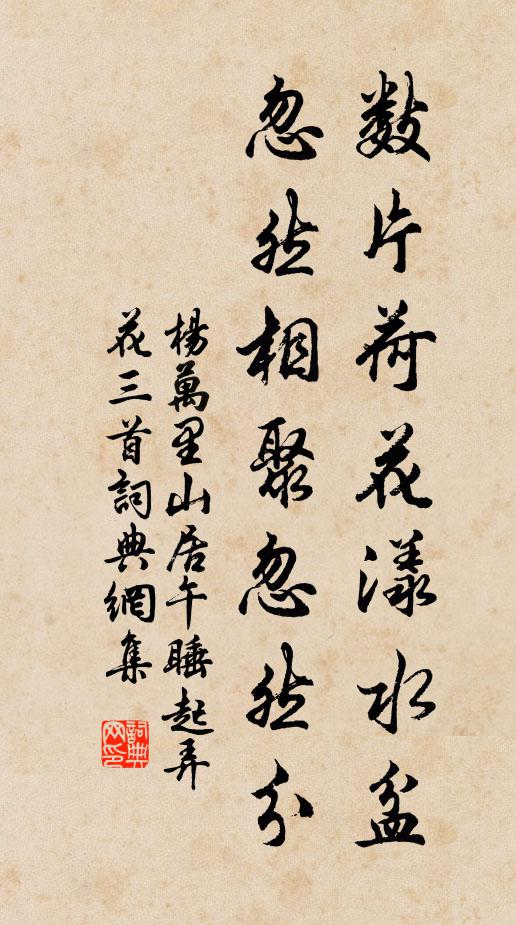 数片荷花漾水盆
忽然相聚忽然分
楊萬里山居午睡起弄
花三首詞典網集
詞典
网印